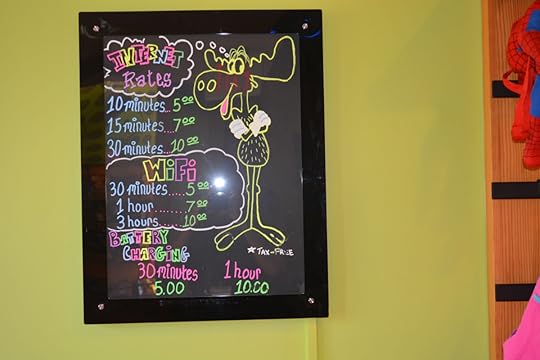 INTERNET
Rates
10 minutes... 5.00
15 minutes.... 7.00
30 minutes.... 10.00
WiFi
30 minutes..... 5.00
1 hour........ 7.00
3 hours..... 10.00
BATTERY
CHARGING
30 minutes 1 hour
5.00 10.00
★ TAX-FREE